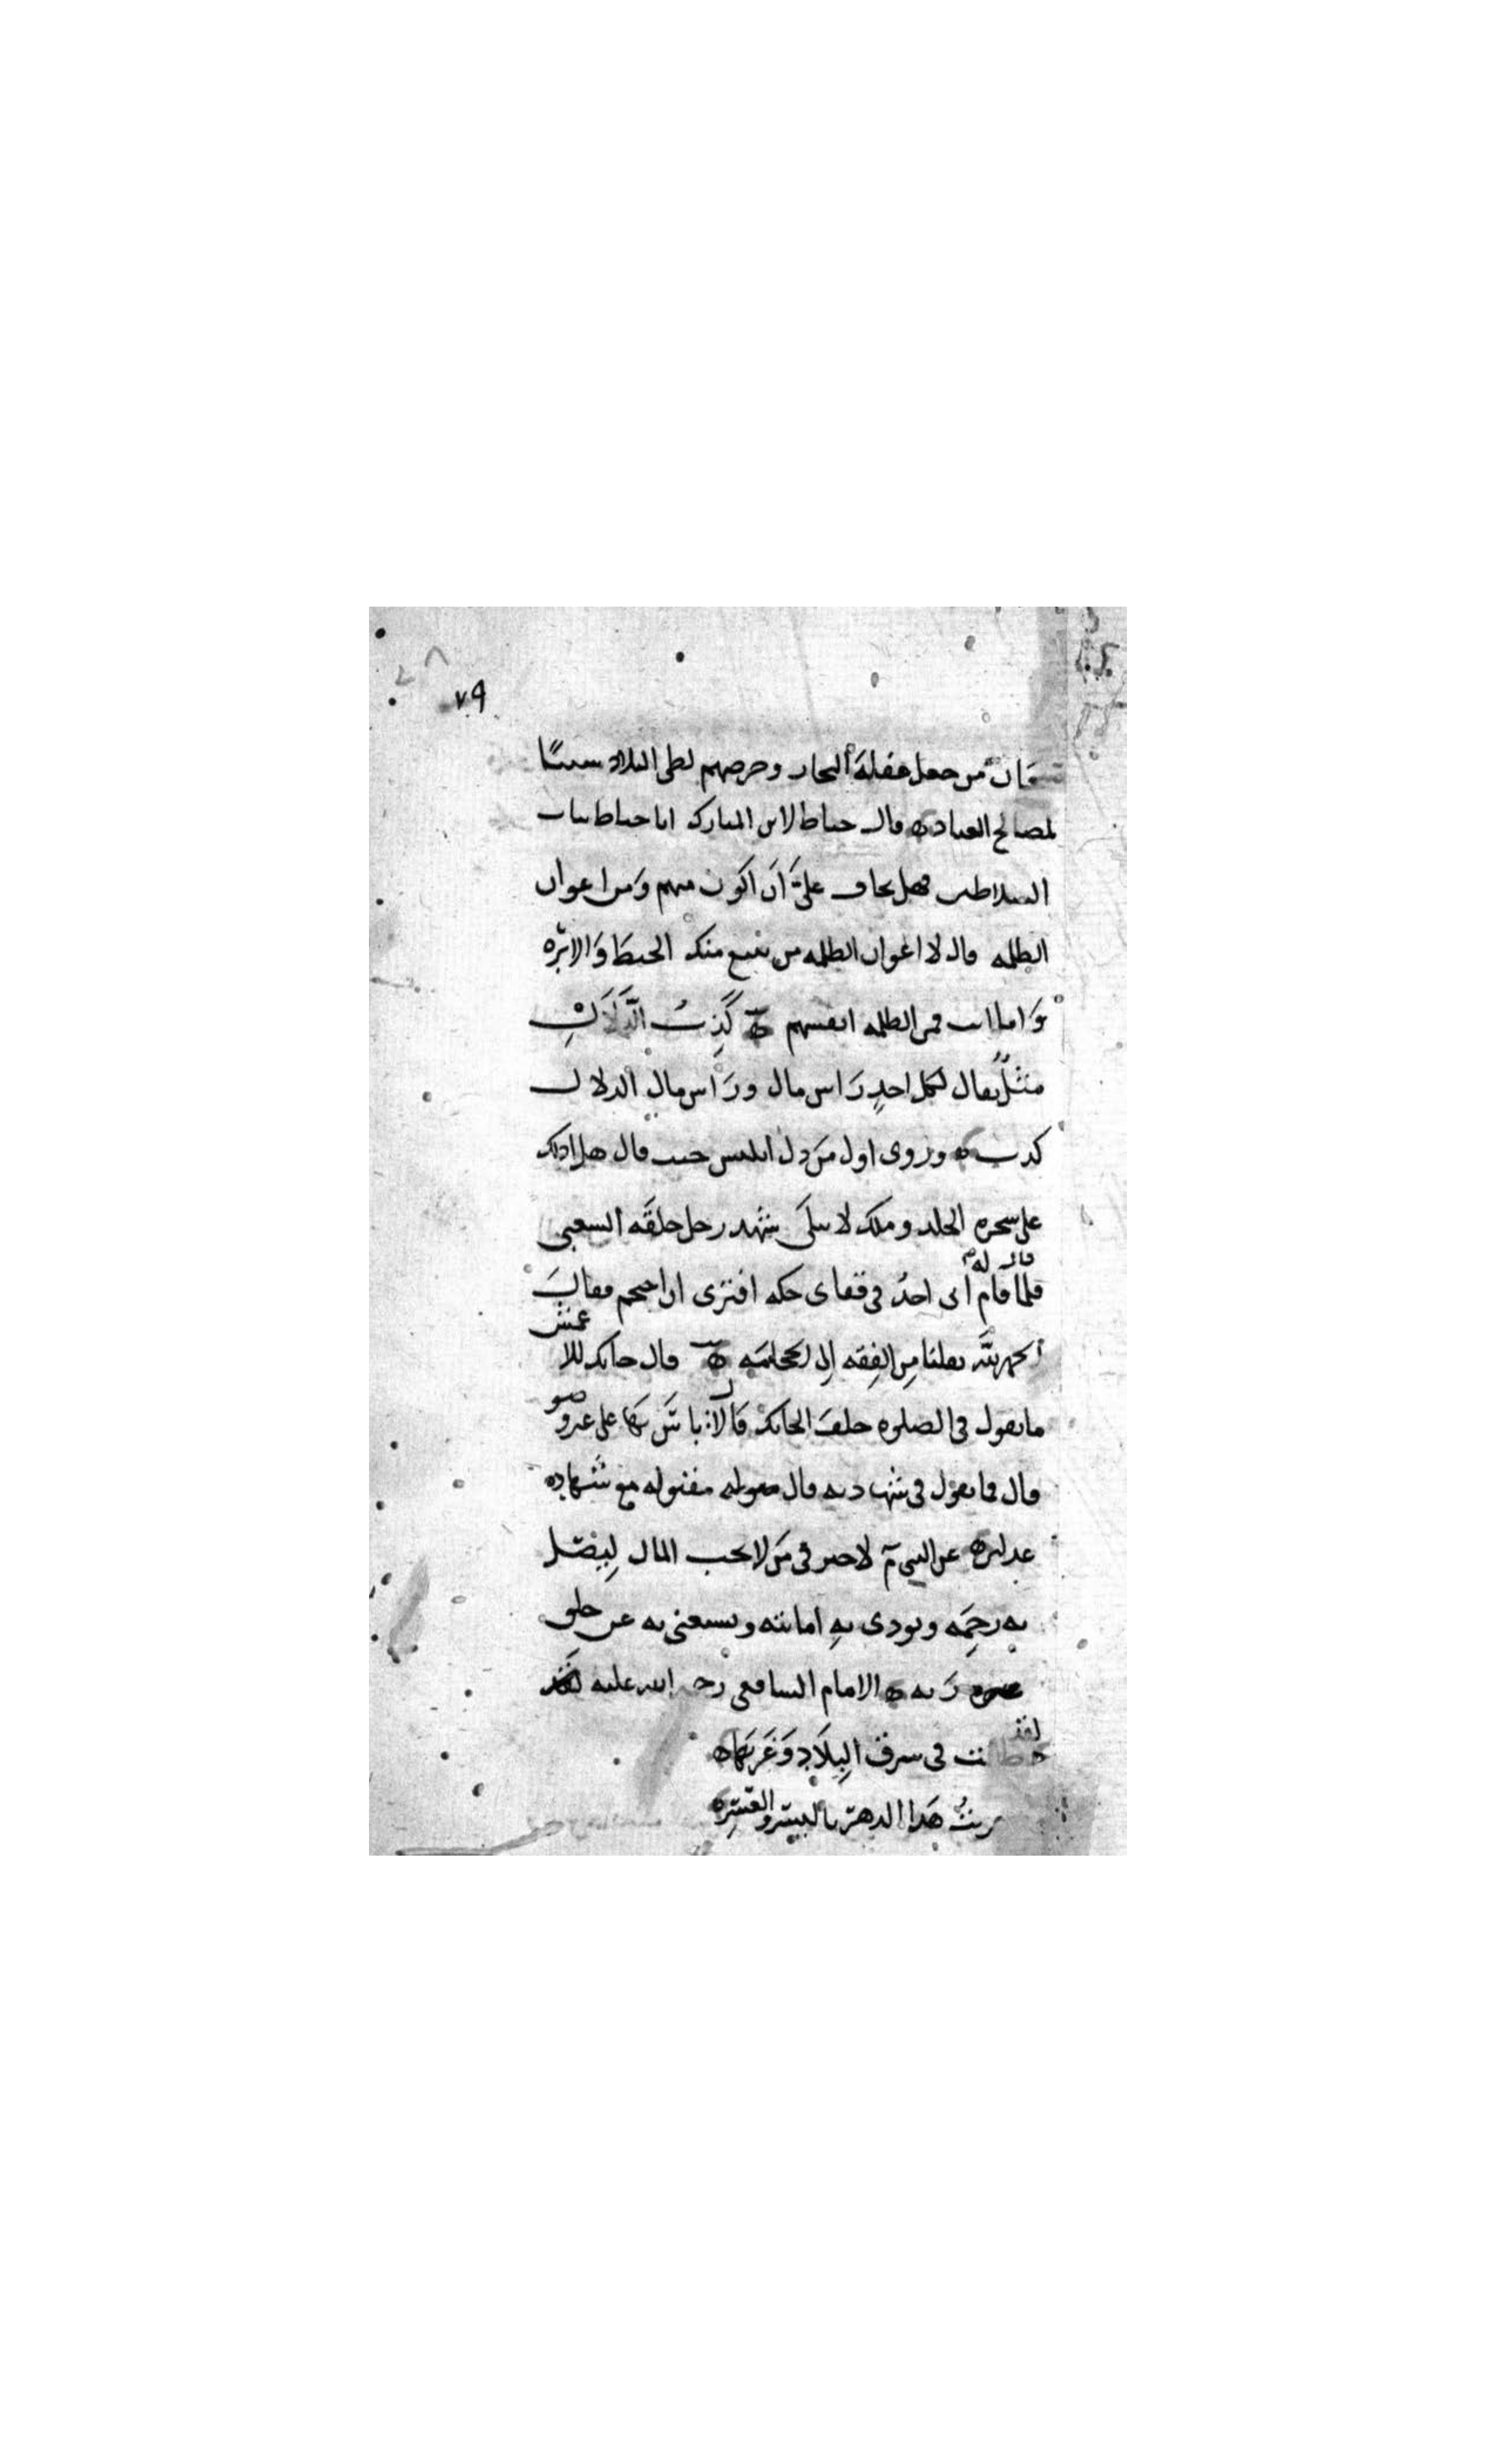 ٧٩
من جعل غفلة التجار وحرصهم لطى البلاد سببًا
لمصالح العباد ه قال خياط لابن المبارك انا خياط ثياب
السلاطين فهل يخاف عليَّ اَن اكون منهم وَمن اعوان
الظلمه قال لا اعوان الظلمه من يبيع منك الخيط وَالابرَه
وَاما انت فمن الظلمه انفسهم ه كَذِبُ الدَّلالِ
مثلٌ يقال لكل احدٍ رَاس مال ورَاس مال الدلال
كذب ه وروى اول مَن دل ابليس حيث قال هل ادلك
على شجره الخلد وملك لا يبلَى شهد رجل حلقَه الشعبي
قال له
فلما قام انى اجدُ في قفاى حكه افترى ان احتجم فقالَ
الحمد للَّه نقلنا مِن الفِقه الى الحجامَه ه قال حائك للاعمش
ما تقول في الصلوه خلفَ الحائك قَال لا باسَ بهَا على غير وضو
قال فما تقول في شهادته قال مقبوله مَع شهادِه
عدلين ه عن النبي م لا خير في مَن لا يحب المال لِيصَل
به رحِمَه ويودى بهِ امانته ويستغنى به عن خلق
رَبه ه الامام الشافعى رحمه الله عليه
لقد
طفت في شرق البِلاَدِ وَغَربهَا ه
هَذا الدهرَ باليسرِ والعسرِ ه